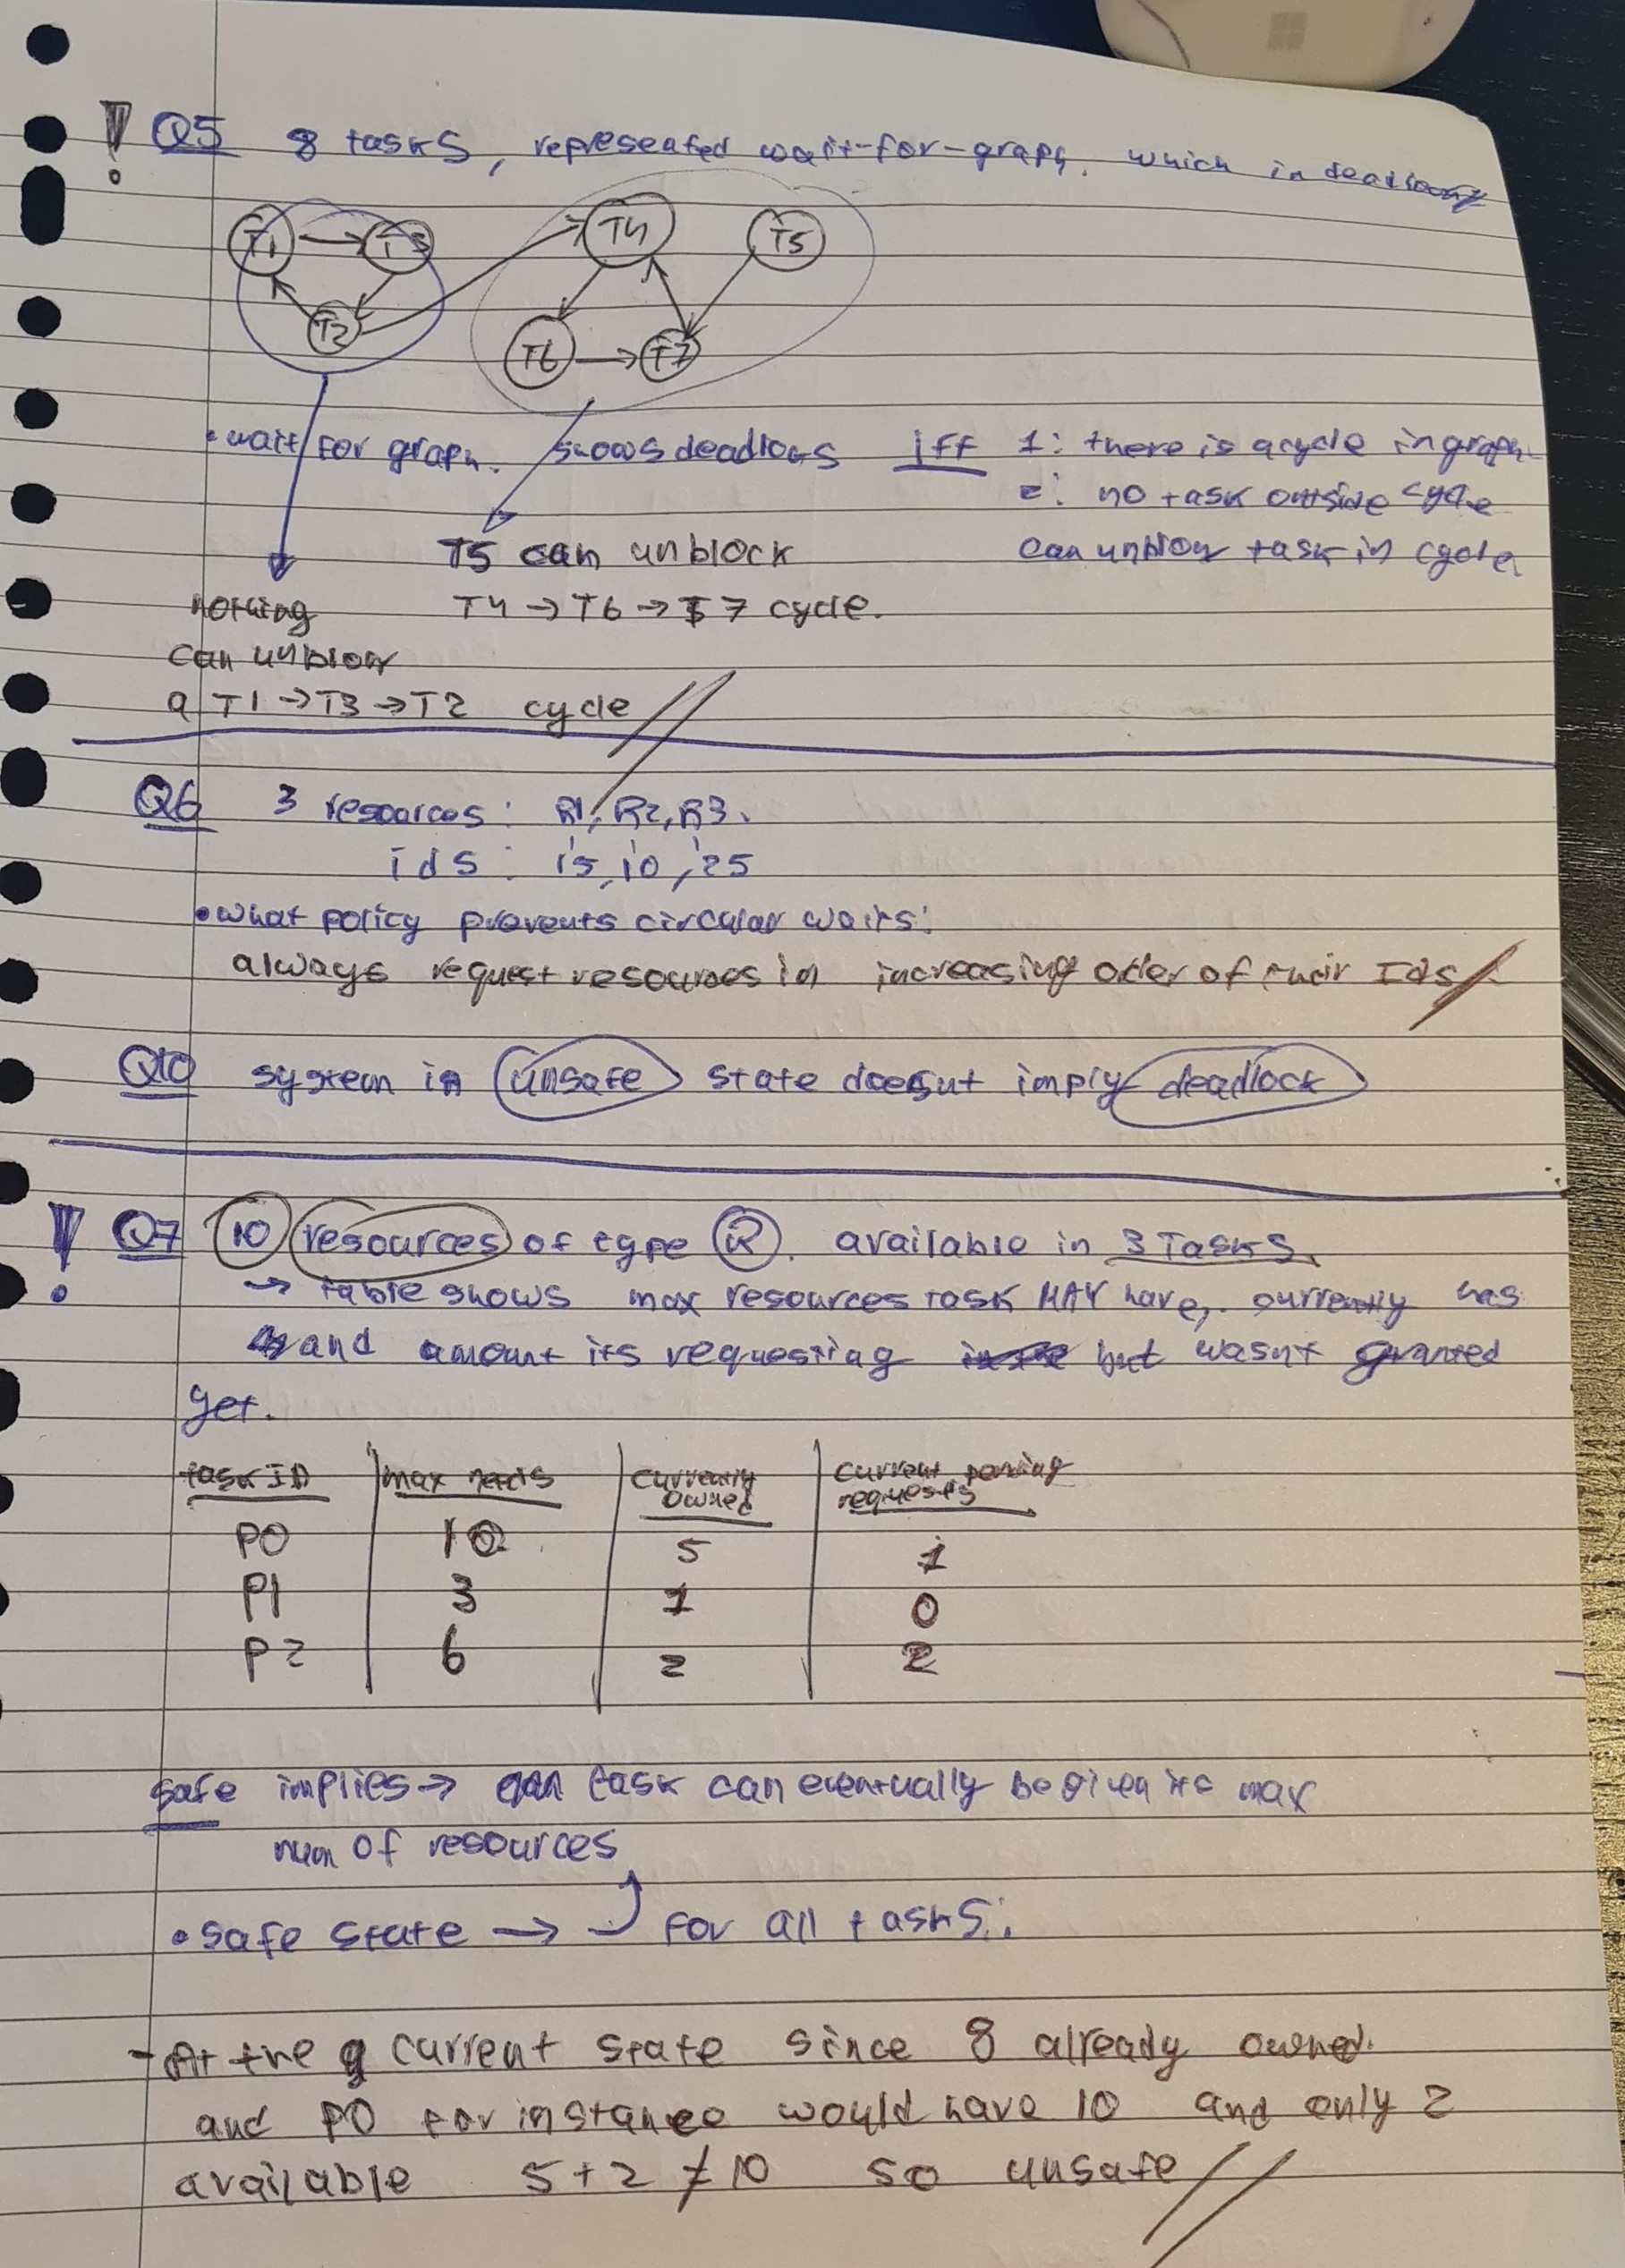 ! Q5 8 tasks, represented wait-for-graph. which in deadlock
T1 → T3 T4 T5
T2 T6 → T7
• wait for graph. shows deadlocks iff 1: there is a cycle in graph
2: no task outside cycle
T5 can unblock can unblock task in cycle
nothing T4 → T6 → T7 cycle.
can unblock
a T1 → T3 → T2 cycle
Q6 3 resources: R1, R2, R3.
ids: 15, 10, 25
• what policy prevents circular waits:
always request resources in increasing order of their Ids
Q10 system in unsafe state doesnt imply deadlock
! Q7 10 resources of type R. available in 3 Tasks.
→ table shows max resources task MAY have, currently has
and amount its requesting but wasnt granted
yet.
task ID max needs currently owned current pending requests
P0 10 5 1
P1 3 1 0
P2 6 2 2
safe implies → task can eventually be given its max
num of resources
• safe state → for all tasks.
- At the current state since 8 already owned.
and P0 for instance would have 10 and only 2
available 5 + 2 ≠ 10 so unsafe